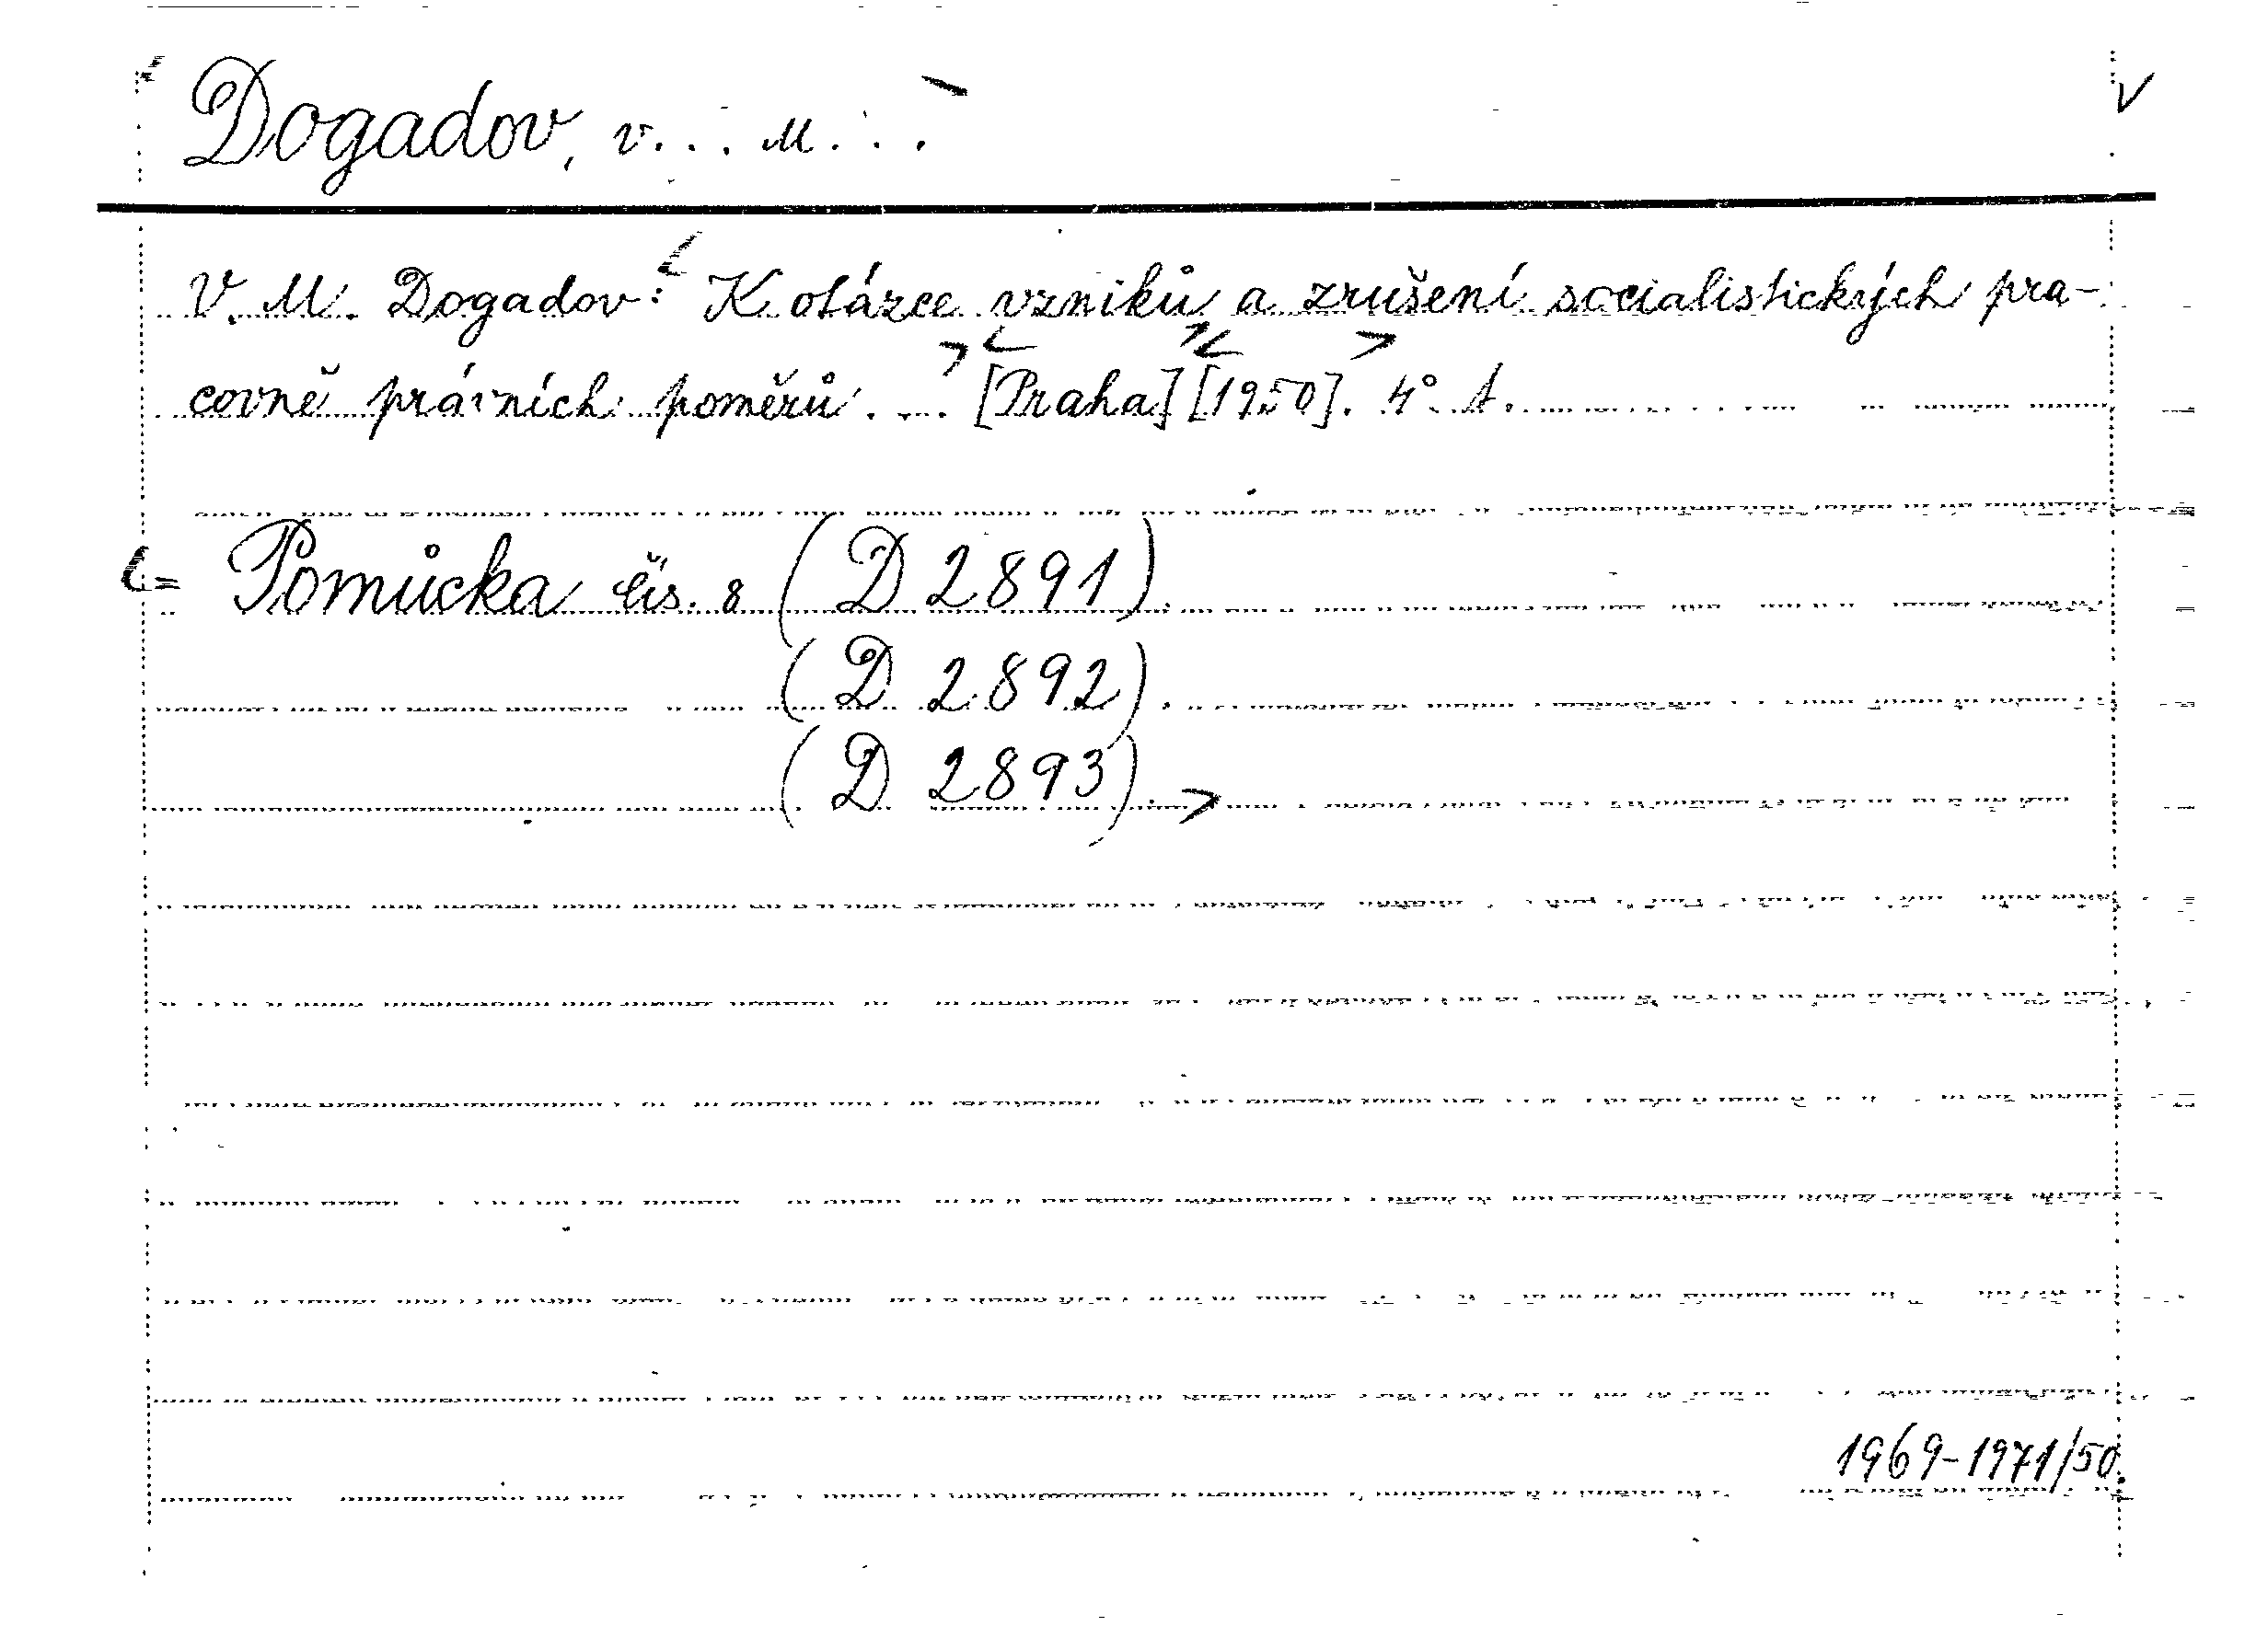 Dogadov, V... M...
V. M. Dogadov: K otázce vzniků a zrušení socialistických pra-
covně právních poměrů... [Praha] [1950]. 4°. 1.
= Pomůcka čís. 8 (D 2891).
(D 2892).
(D 2893).
1969-1971/50.